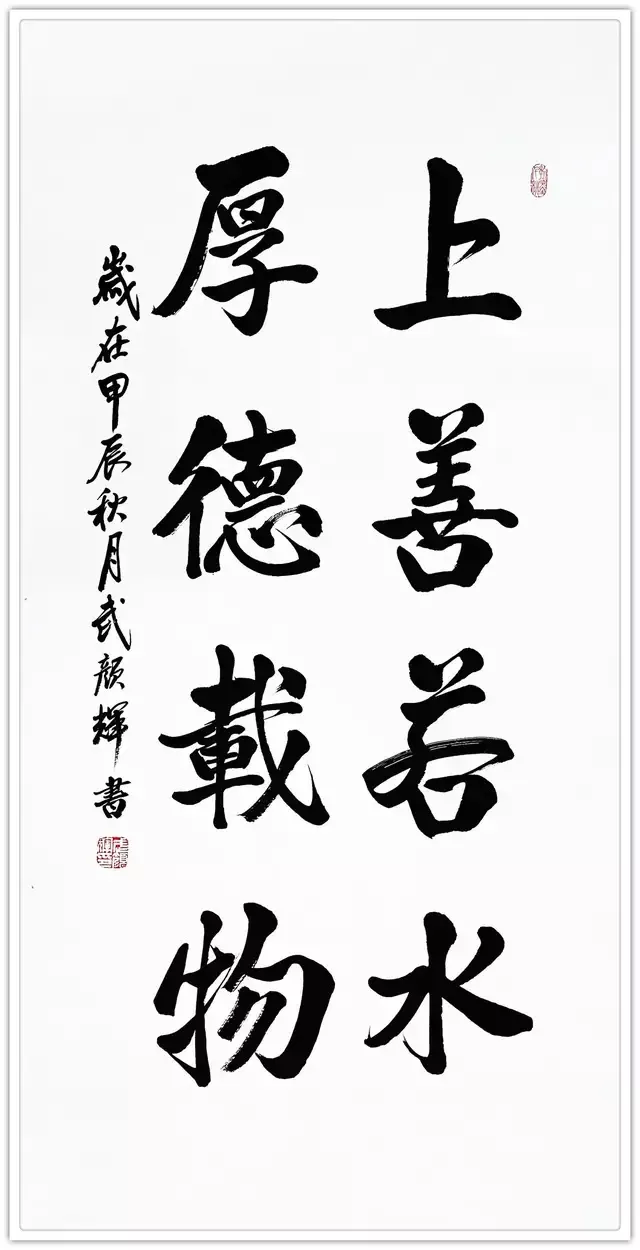 上善若水
厚德載物
歲在甲辰秋月武顏輝書